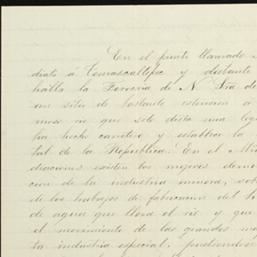 En el punto llamado
diato á Temascaltepec y distante
halla la Ferreria de N Sra de
un sitio de bastante estension á
mero rio que solo dista una leg
ha hecho carretera y establece la
tal de la Republica. En el Min
diaciones existen los mejores eleme
cion de la industria minera, sob
de los trabajos de fabricacion del
de agua que lleva el rio y que
el movimiento de las grandes ma
ta industria especial, pudiendo